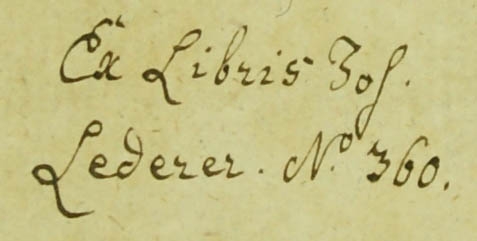 Ex Libris Jos.
Lederer. No. 360.